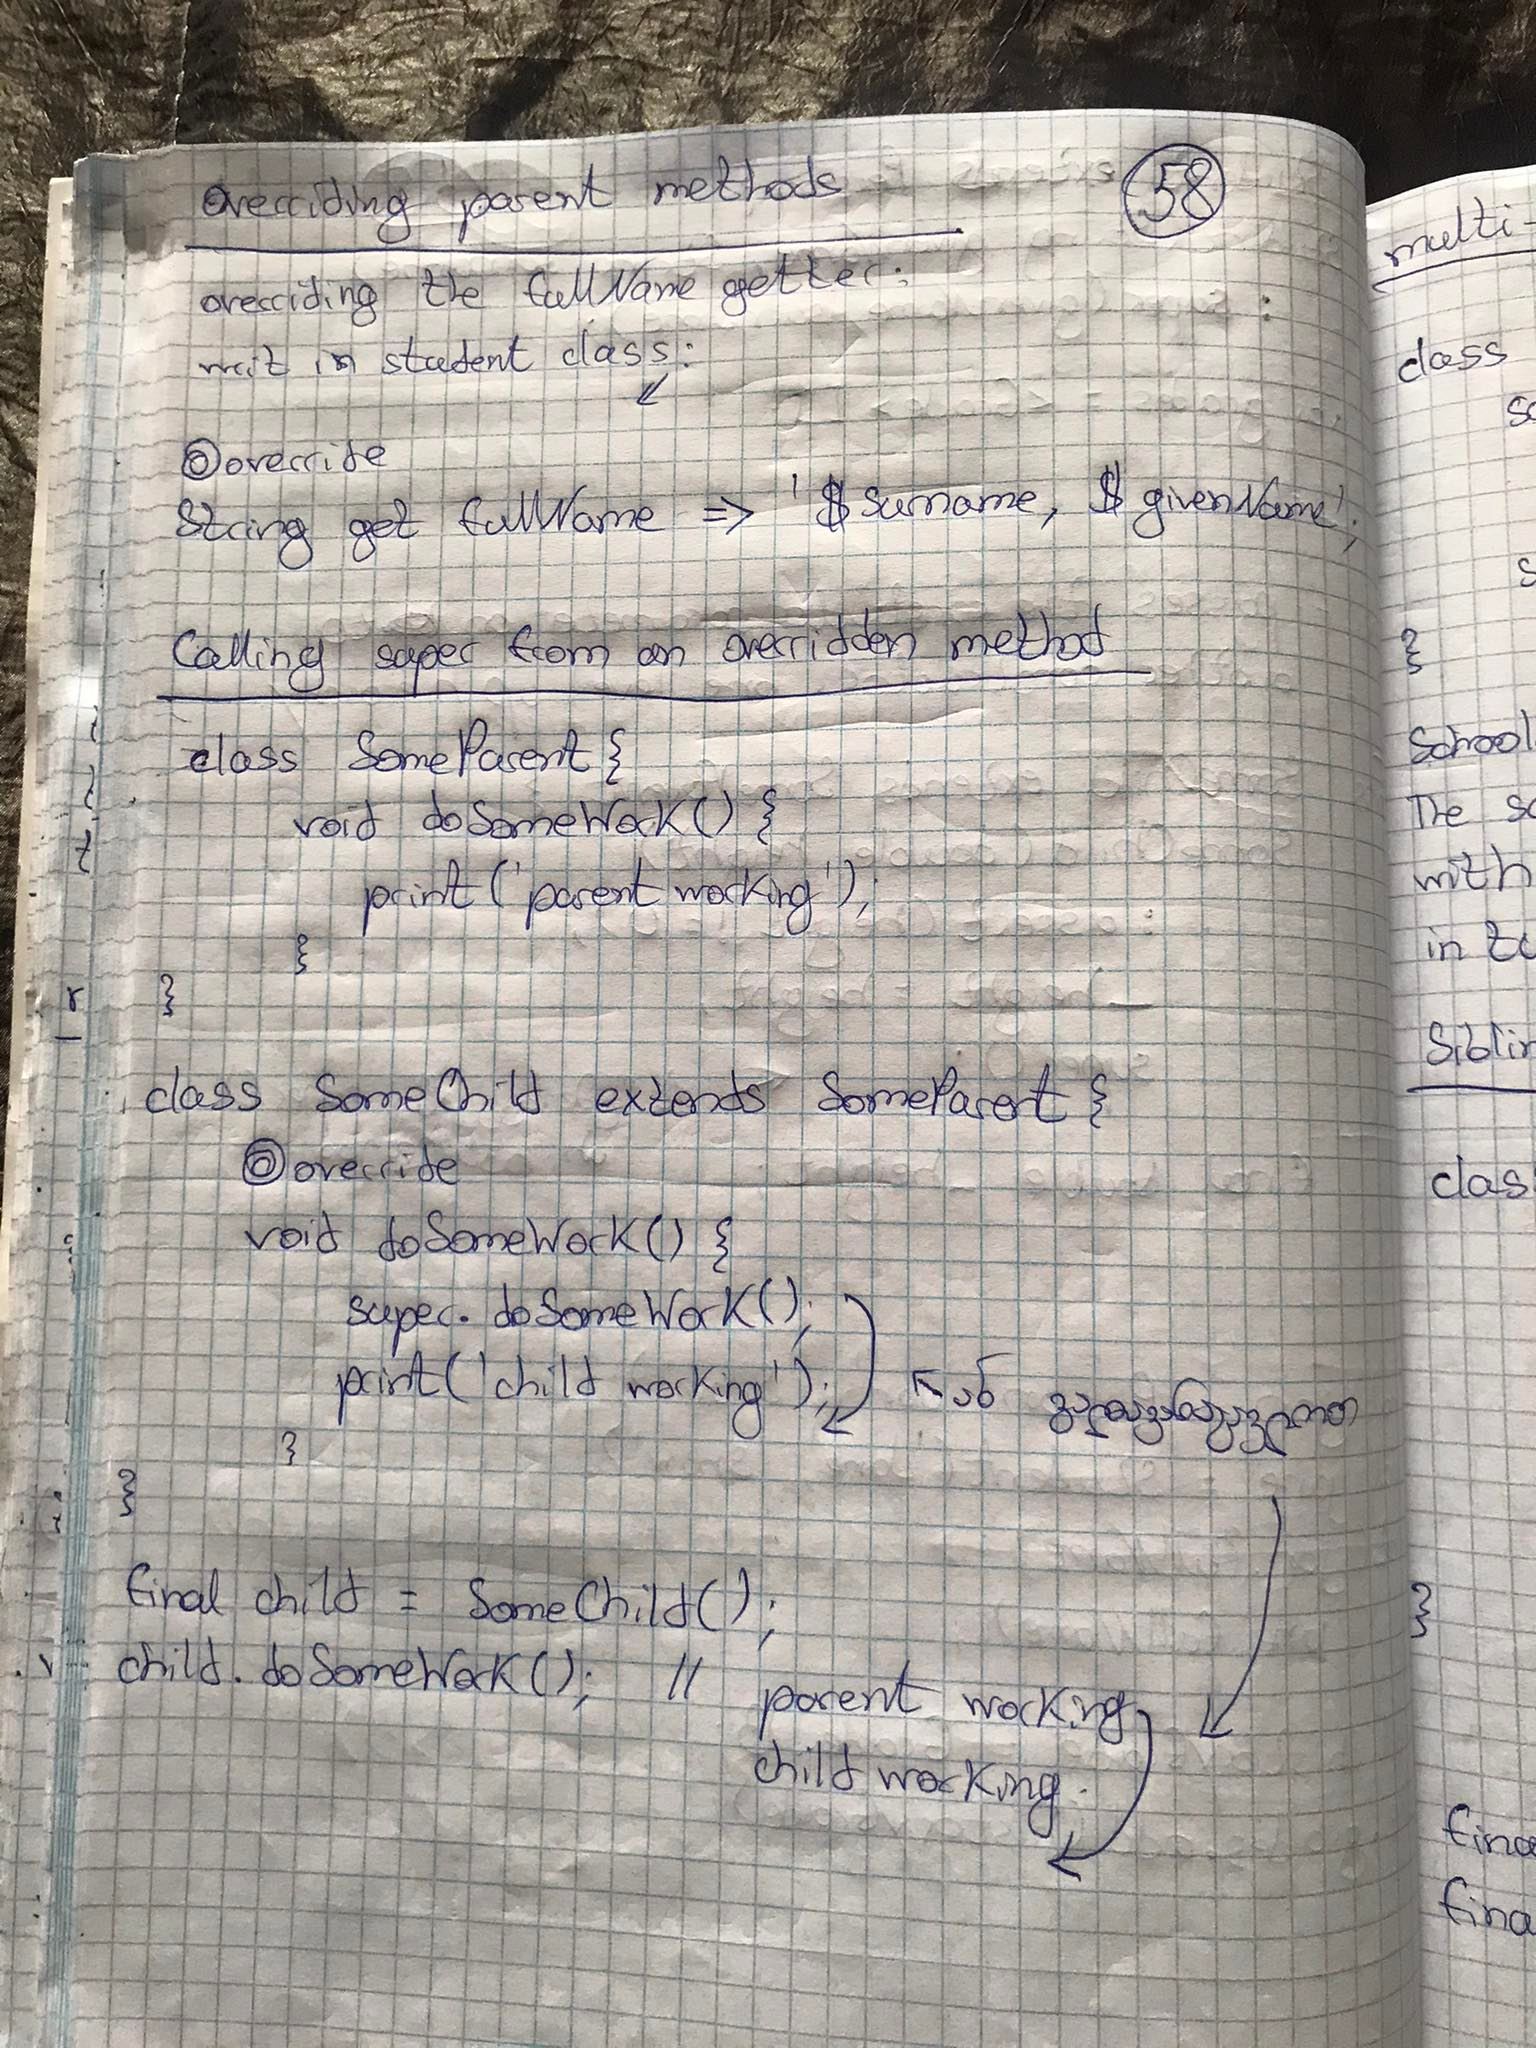 58
overriding parent methods
overriding the fullName getter:
writ in student class:
@override
String get fullName => '$surname, $givenName';
Calling super from an overridden method
class SomeParent{
void doSomeWork() {
print('parent working');
}
}
class SomeChild extends SomeParent{
@override
void doSomeWork() {
super.doSomeWork();
print('child working');
ან
}
}
final child = SomeChild();
child.doSomeWork(); // parent working
child working.
multi-
class
}
School
The
with
in
class
}